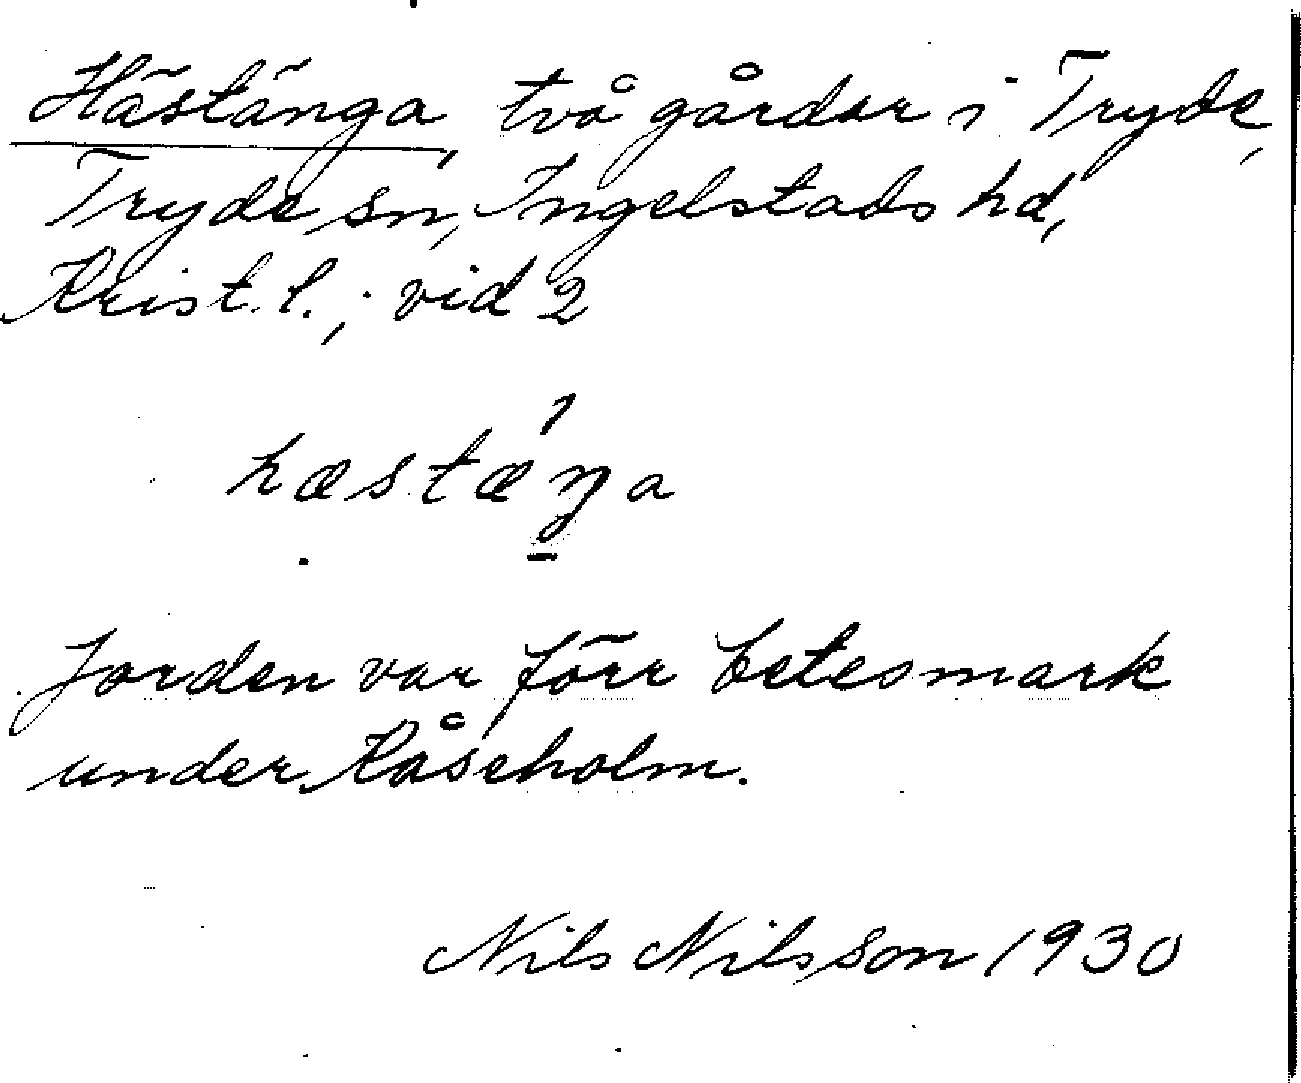 Hästänga, två gårdar i Tryde,
Tryde sn, Ingelstads hd,
Krist. l.; vid 2
hæstæŋa
Jorden var förr betesmark
under Råseholm.
Nils Nilsson 1930